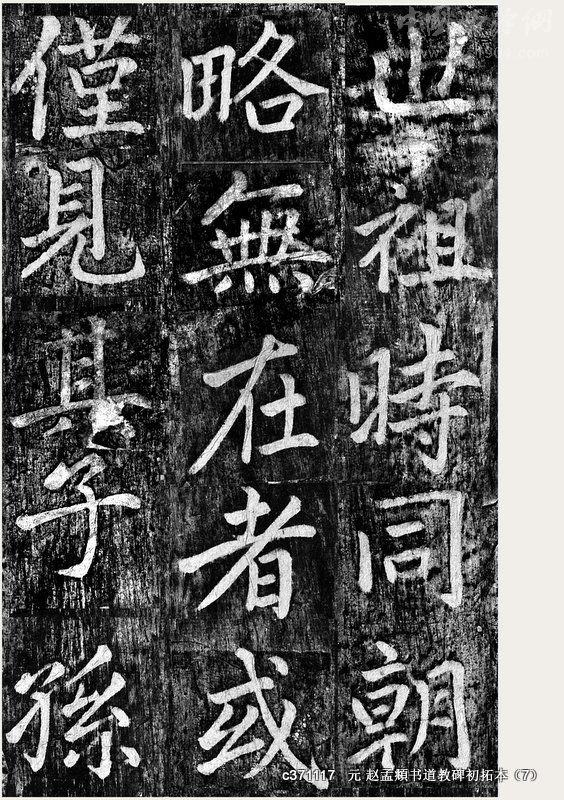 世祖時同朝
略無在者或
僅見其子孫
c371117 元 赵孟頫书道教碑初拓本（7）